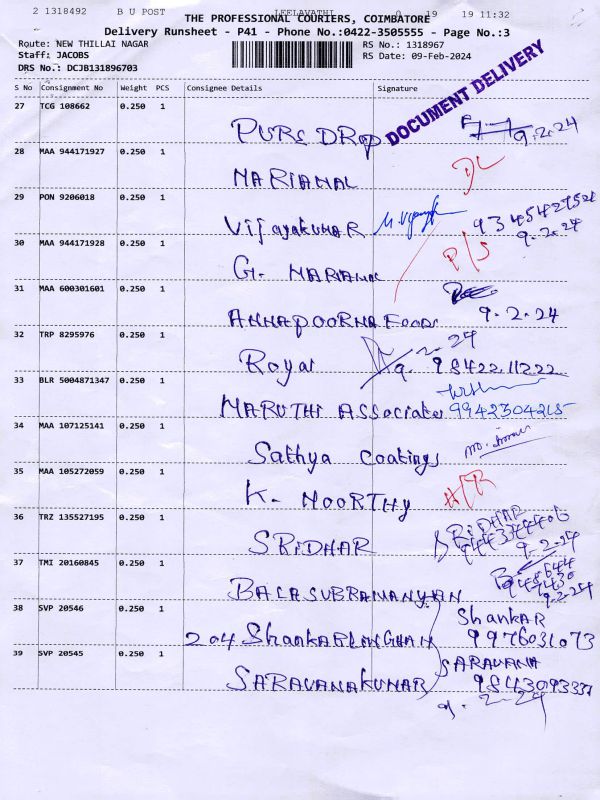 2 1318492 B U POST LEELAVATHI 0 19 19 11:32
THE PROFESSIONAL COURIERS, COIMBATORE
Delivery Runsheet - P41 - Phone No.:0422-3505555 - Page No.:3
Route: NEW THILLAI NAGAR RS No.: 1318967
Staff: JACOBS RS Date: 09-Feb-2024
DRS No.: DCJB131896703
DOCUMENT DELIVERY
S No Consignment No Weight PCS Consignee Details Signature
27 TCG 108662 0.250 1
PURE DROP 9.2.24
28 MAA 944171927 0.250 1
MARIAMAL D/L
29 PON 9206018 0.250 1
Vijayakumar 9345427521
9.2.24
30 MAA 944171928 0.250 1
G. MARIAMAL P/S
31 MAA 600301601 0.250 1
ANNAPOORNA FOODS 9.2.24
32 TRP 8295976 0.250 1
Royal 9.2.24
98422 11222
33 BLR 5004871347 0.250 1
MARUTHI ASSociates 9942304215
34 MAA 107125141 0.250 1
Sathya coatings
35 MAA 105272059 0.250 1
K. MOORTHY
36 TRZ 135527195 0.250 1
SRIDHAR SRIDHAR
9.2.24
37 TMI 20160845 0.250 1
BALASUBRAMANYAN 9.2.24
38 SVP 20546 0.250 1
204 ShankarlingHAM Shankar
9976031073
39 SVP 20545 0.250 1
SARAVANAKUMAR SARAVANA
9843093331
9.2.24